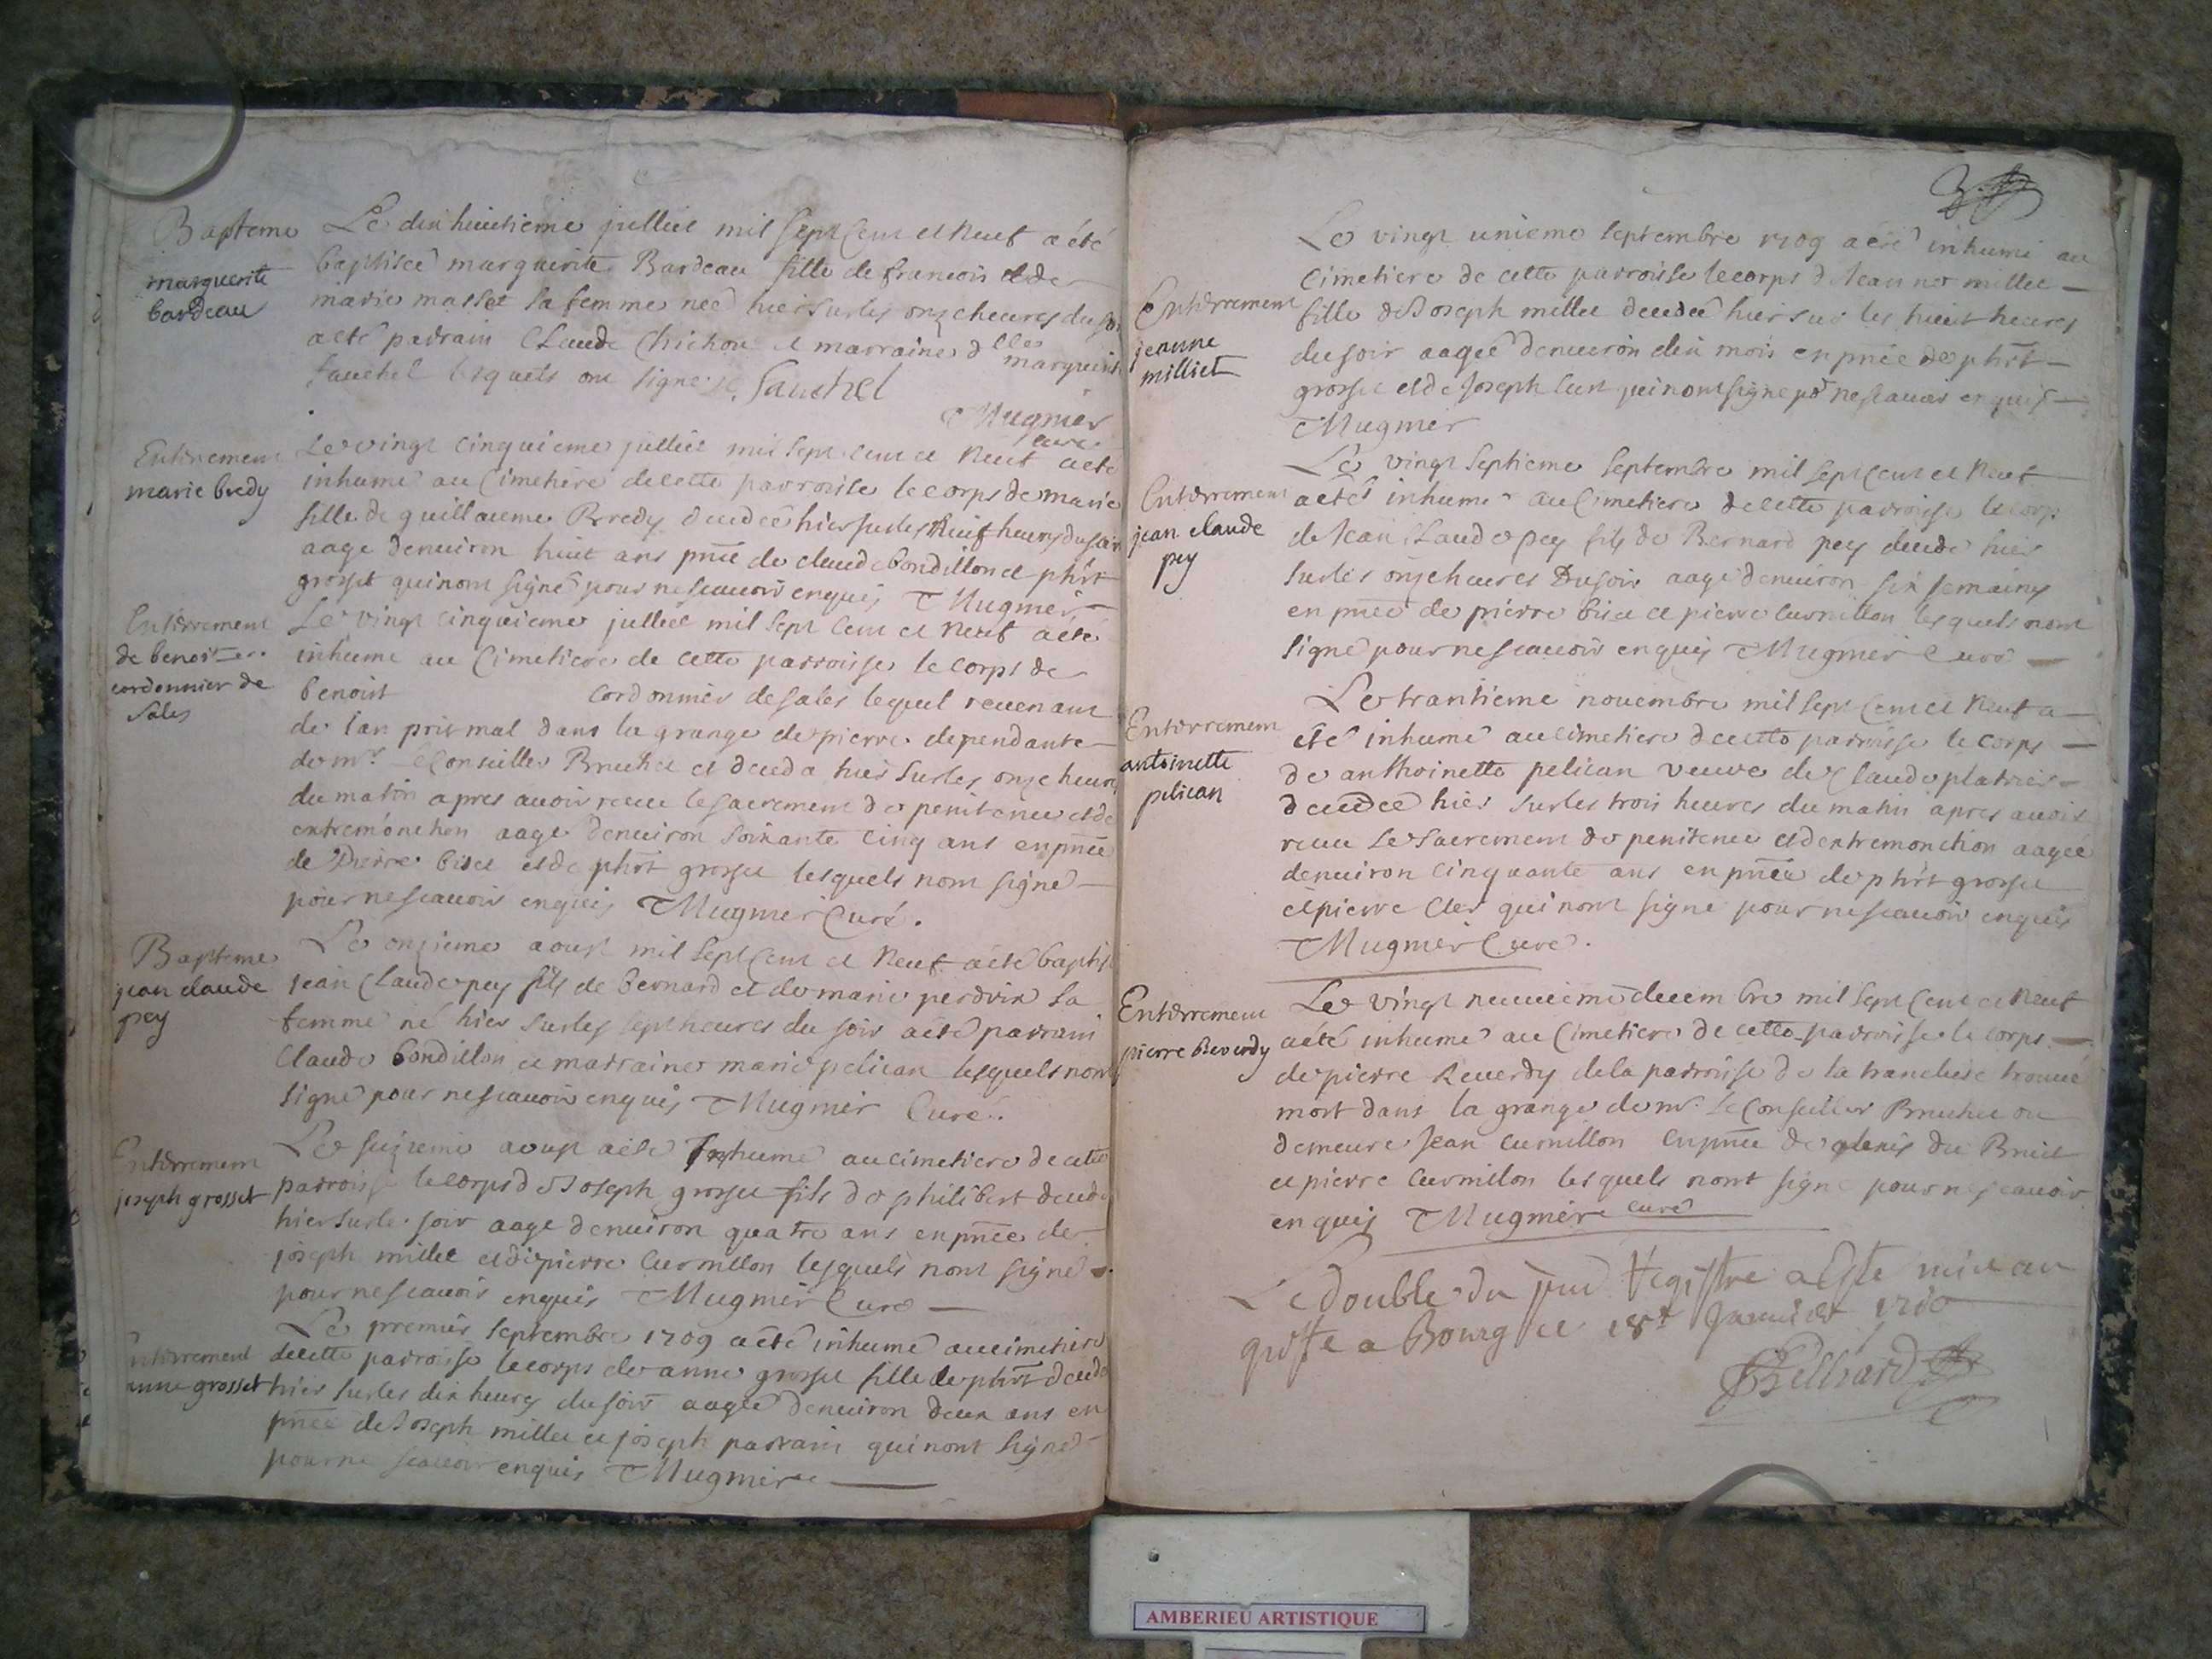 Bapteme
marguerite
bardeau
Le dix huictieme julliet mil sept cent et neuf a été
baptisée marguerite Bardeau fille de francois et de
marie masset sa femme née hier sur les onze heures du soir
a eté parrain Claude Chichou et marraine dlles marguerite
fauchel lesquels ont signé Fauchel
Mugnier
curé
Enterrement
marie bredy
Le vingt cinquieme julliet mil sept cent et neuf a eté
inhumé au Cimetiere de cette parroisse le corps de marie
fille de guillaume Bredy decedée hier sur les huit heures du soir
aage denuiron huit ans pnce de claude bondillon et phirt
grosset qui nont signé pour ne scauoir enquis Mugnier
Enterrement
de benoit
cordonnier de
Sales
Le vingt cinquieme julliet mil sept cent et neuf a eté
inhumé au Cimetiere de cette parroisse le corps de
benoist cordonnier de sales lequel reuenant
de lan prit mal dans la grange de pierre dependante
de mr le Conseiller Bruchet et deceda hier sur les onze heures
du matin apres auoir receu le sacrement de penitence et de
extremonction aagé denuiron soixante cinq ans en pnce
de Pierre bises et de phirt grosset lesquels nont signé
pour ne scauoir enquis Mugnier Curé.
Bapteme
jean claude
pey
Le onzieme aoust mil sept cent et neuf a eté baptisé
jean Claude pey fils de bernard et de marie perdrix sa
femme né hier sur les sept heures du soir a eté parrain
Claude bondillon et marraine marie pelican lesquels nont
signé pour ne scauoir enquis Mugnier Curé.
Enterrement
joseph grosset
Le seizieme aoust a eté Inhumé au cimetiere de cette
parroisse le corps de Joseph grosset fils de philibert decedé
hier sur le soir aage denuiron quatre ans en pnce de
joseph millet et de pierre Curnillon lesquels nont signé
pour ne scauoir enquis Mugnier Curé
Enterrement
anne grosset
Le premier septembre 1709 a eté inhumé au cimetiere
de cette parroisse le corps de anne grosset fille de phirt decedé
hier sur les dix heures du soir aagée denuiron deux ans en
pnce de Joseph millet et joseph parrain qui nont signé
pour ne scauoir enquis Mugnier
3
Enterrement
jeanne
milliet
Le vingt unieme septembre 1709 a eté inhumé au
Cimetiere de cette parroisse le corps de Jeanne millet
fille de Joseph millet decedée hier sur les huit heures
du soir aagée denuiron dix mois en pnce de phirt
grosset et de Joseph qui nont signé pr ne scauoir enquis
Mugnier
Enterrement
jean claude
pey
Le vingt septieme septembre mil sept cent et neuf
a eté inhumé au Cimetiere de cette parroisse le corps
de Jean Claude pey fils de Bernard pey decedé hier
sur les onze heures Du soir aagé denuiron six semaines
en pnce de pierre bise et pierre Curnillon lesquels nont
signé pour ne scauoir enquis Mugnier Curé
Enterrement
antoinette
pelican
Le trantieme nouembre mil sept cent et neuf a
eté inhumé au cimetiere de cette parroisse le corps
de anthoinette pelican veuve de Claude platrier
decedée hier sur les trois heures du matin apres auoir
receu le sacrement de penitence et dextremonction aagée
denuiron cinquante ans en pnce de phirt grosset
et pierre cler qui nont signé pour ne scauoir enquis
Mugnier Curé.
Enterrement
pierre Reverdy
Le vingt neuuieme decembre mil sept cent et neuf
a eté inhumé au Cimetiere de cette parroisse le corps
de pierre Reuerdy de la parroisse de la trancliere trouué
mort dans la grange de mr le Conseiller Bruchet ou
demeure Jean Curnillon en pnce de alexis du Breüil
et pierre Curnillon lesquels nont signé pour ne scauoir
enquis Mugnier curé
Le Double du pnt Registre a Esté mis au
greffe a Bourg ce 18t Januier 1710
AMBERIEU ARTISTIQUE